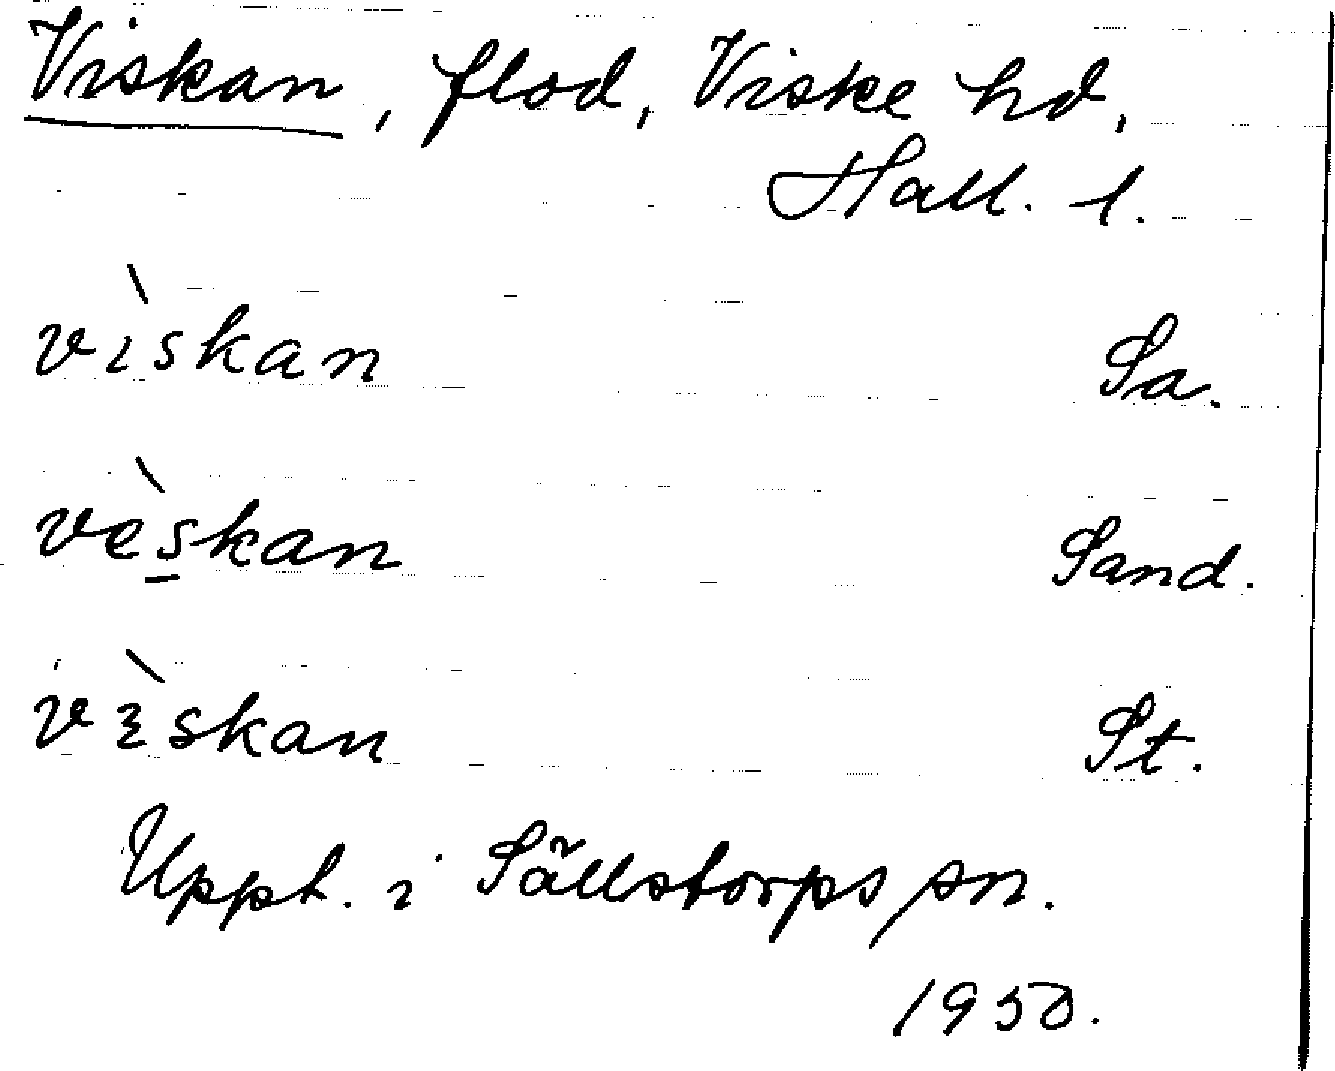 Viskan, flod, Viske hd,
Hall. l.
vìskan Sa.
vèskan Sand.
vèskan St.
Uppt. i Sällstorps sn.
1950.